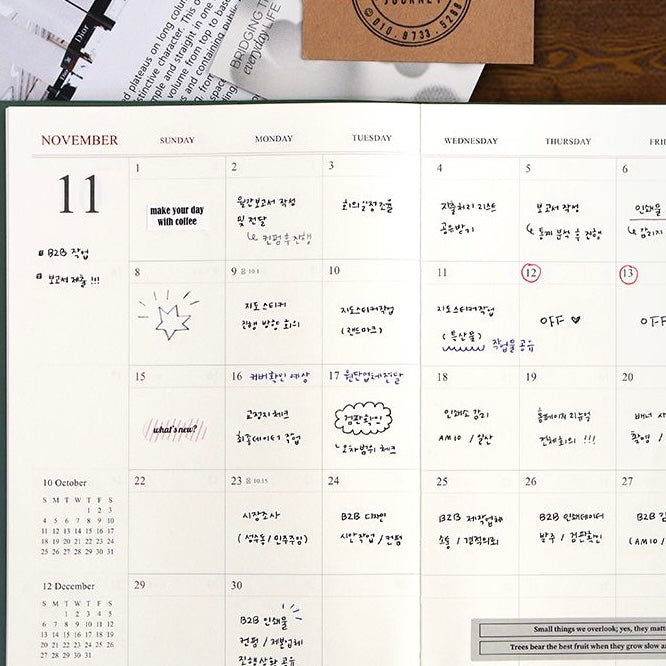 JOURNEY
010.8733.5288
plateaus on long colu
stinctive character. This
BRIDGING T
everyday LIFE
Dior
NOVEMBER
SUNDAY
MONDAY
TUESDAY
WEDNESDAY
THURSDAY
FRI
11
■ B2B 작업
■ 보고서 제출 !!!
1
make your day
with coffee
2
월간보고서 작성
및 전달
↳ 컨펌 후 진행
3
회의 일정 전달
4
지출처리 리스트
공유받기
5
보고서 작성
↳ 통계 분석 후 진행
6
인쇄물
↳ 감리지
8
9 10.1
지도스티커
진행 방향 회의
10
지도스티커작업
(랜드마크)
11
지도스티커작업
(특산물)
작업물 공유
12
OFF ♥
13
OFF
15
what's new?
16 커버확인 예상
교정지 체크
최종데이터 작업
17 원단업체전달
검판확인
오차범위 체크
18
인쇄소 감리
AM 10 / 일산
19
홈페이지 리뉴얼
전체회의 !!!
20
배너 사
촬영 /
22
23 10.15
시장조사
(성수동 / 민주주임)
24
B2B 디자인
시안작업 / 컨펌
25
B2B 제작업체
소통 / 견적의뢰
26
B2B 인쇄데이터
발주 / 검판확인
27
B2B 감
(AM10 /
29
30
B2B 인쇄물
컨펌 / 제본업체
진행상황 공유
10 October
S M T W T F S
1 2 3
4 5 6 7 8 9 10
11 12 13 14 15 16 17
18 19 20 21 22 23 24
25 26 27 28 29 30 31
12 December
S M T W T F S
1 2 3 4 5
6 7 8 9 10 11 12
13 14 15 16 17 18 19
20 21 22 23 24 25 26
27 28 29 30 31
Small things we overlook; yes, they matt
Trees bear the best fruit when they grow slow a